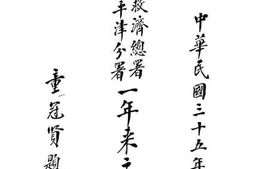 中華民國三十五年
救濟總署
平津分署
一年來之
童冠賢題